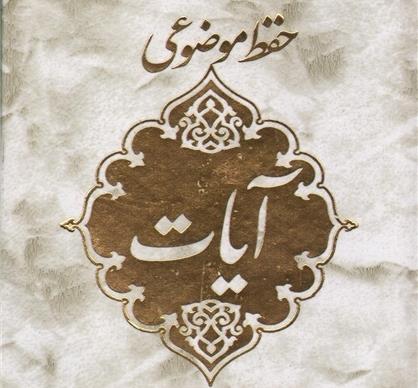 حفظ موضوعی
آیات